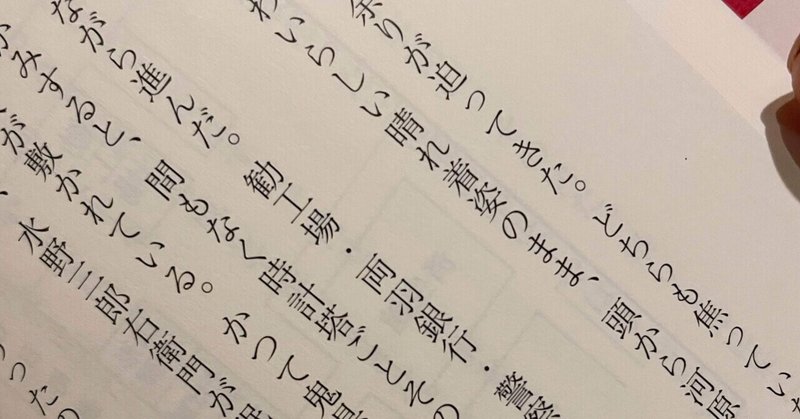 余りが迫ってきた。どちらも焦ってい
わいらしい晴れ着姿のまま、頭から河原
ながら進んだ。勧工場・両羽銀行・警察
みすると、間もなく時計塔ごとその
が敷かれている。かつて鬼県
、水野三郎右衛門が
ったの